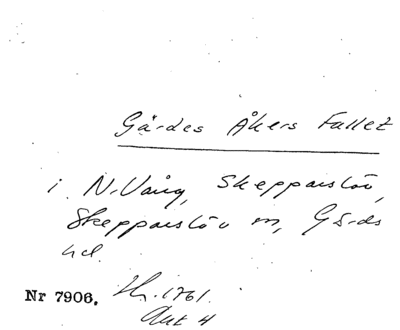 Gärdes Åkers Fallet
i N. Vång, Skepparslöv,
Skepparslöv sn, Gärds
hd.
Nr 7906. Hr. 1761.
Akt 4